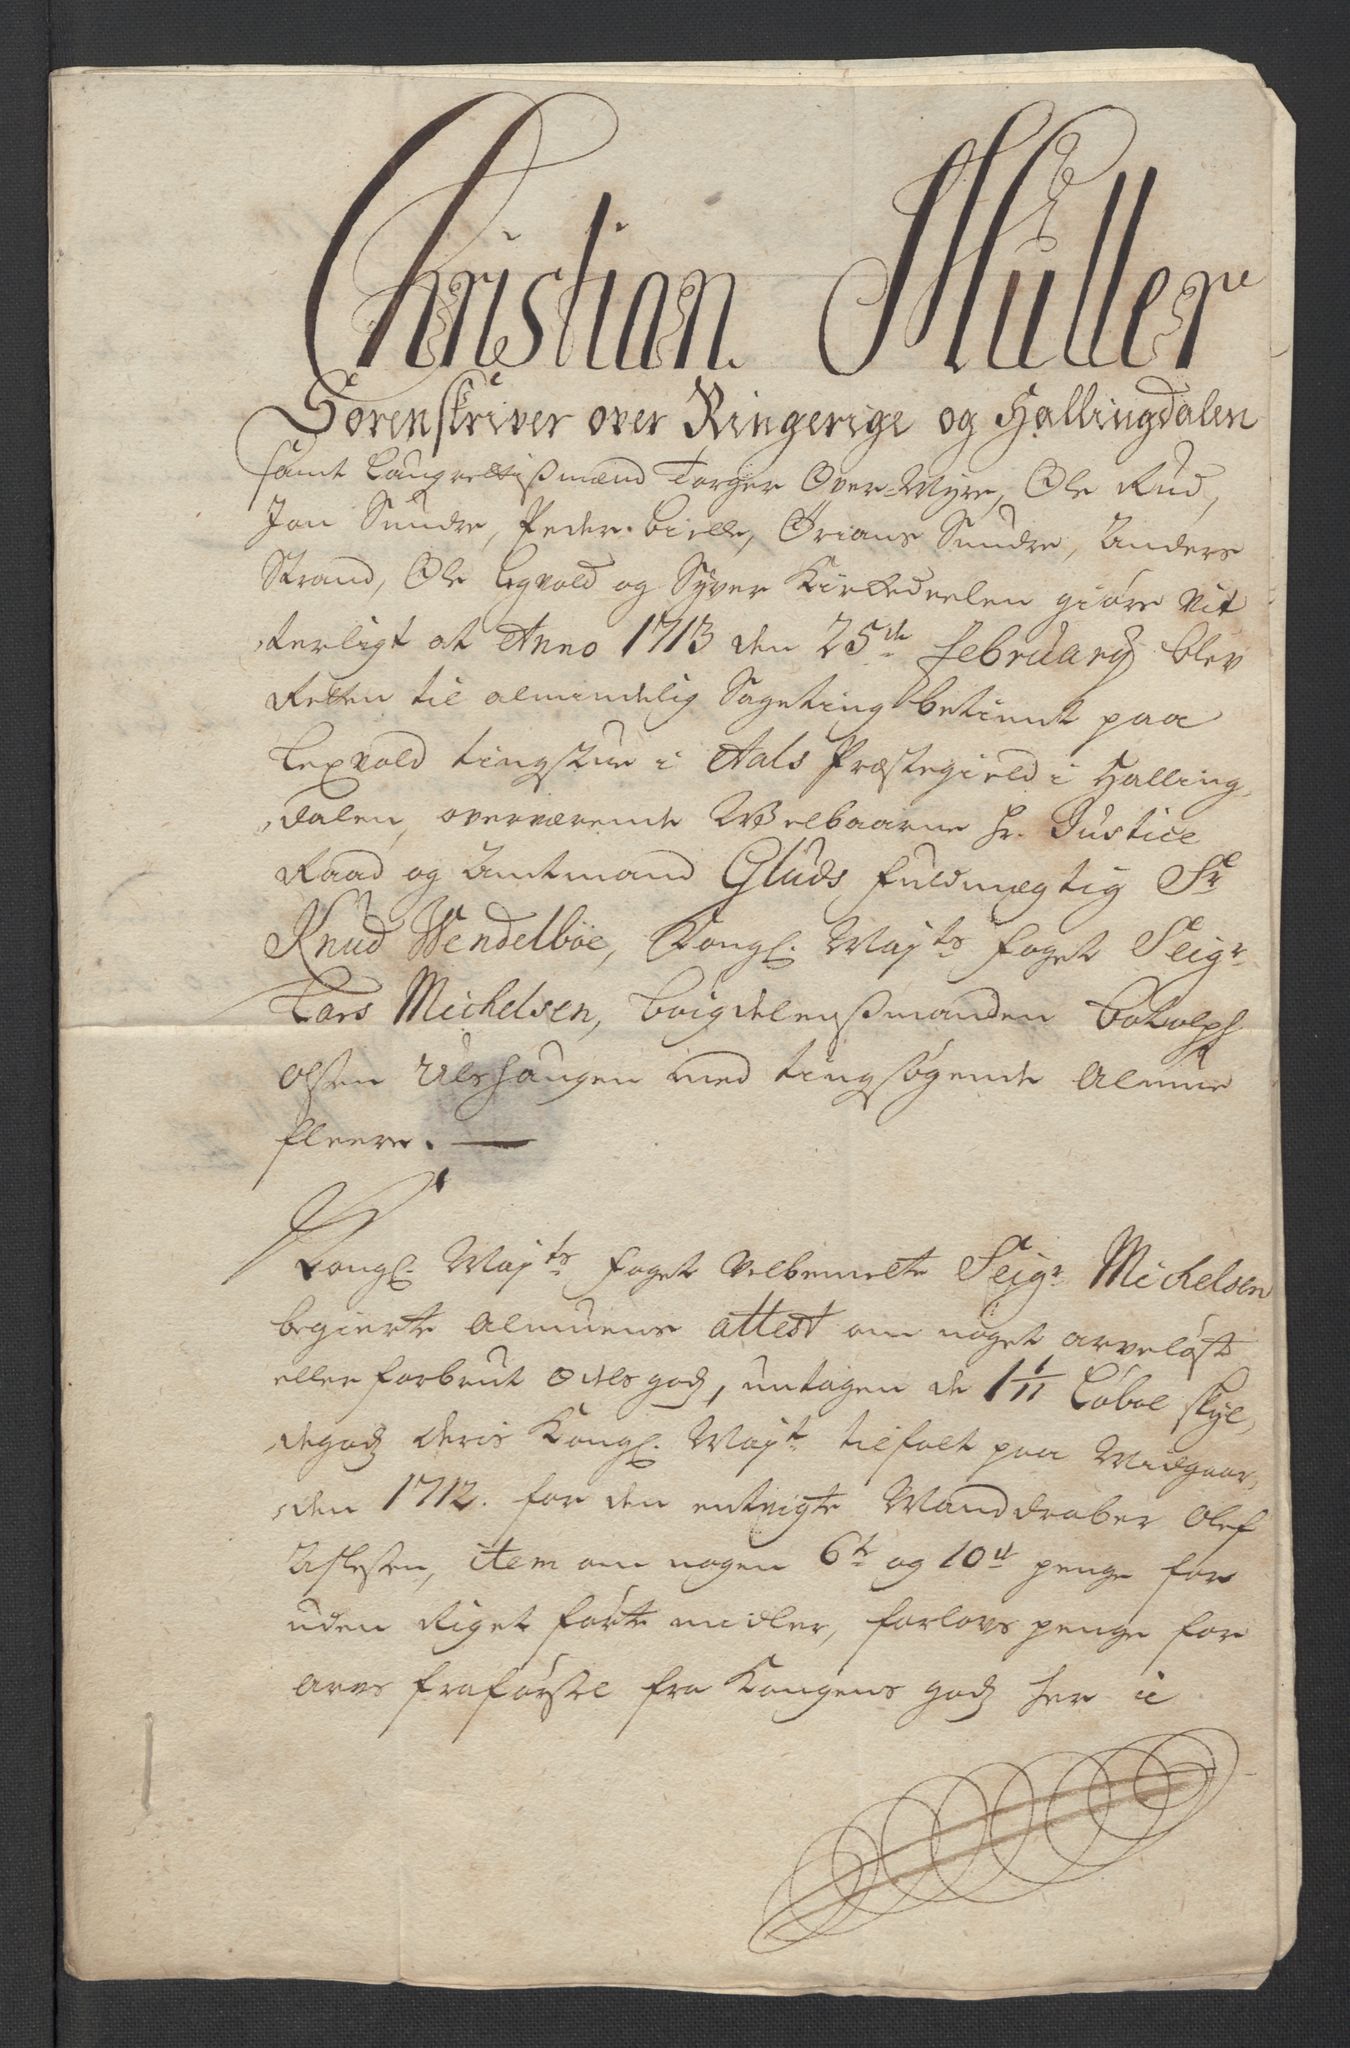 Christian Muller
Sorenskriver over Ringerige og Hallingdalen
samt Laugrettismænd Torger Over-Myre, Ole Rud,
Jon Sundre, Peder Bielle, Ørians Sundre, Anders
Strand, Ole Legvold og Syver Kirkedeelen giøre Vit
terligt at Anno 1713 den 25de February blev
Retten til almindelig Sageting betient paa
Lexvold tingstue i Aals Præstegield i Halling
dalen, overværende Welbaarne Hr. Justice
Raad og Amtmand Gluds fuldmægtig Sr
Knud Wendelboe, Kongl. Mayts foget Seigr
Lars Michelsen, Boigdelensmanden Botolph
Olsen Ulshaugen med tingsøgende Almue
fleere.
Kongl. Mayts foget Velbemelte Seigr Michelsen
begierte Almuens attest om noget arveløst
eller forbrut Odelsgods, untagen de 1 1/11 Løbol skyl
degods deris Kongl. Mayt tilfalt paa Midgaar
den 1712. for den entvigte Manddraber Olef
Aslesen, item om nogen 6te og 10de penge for
uden Riget førte midler, forlovs penge for
arvs fraførsel fra Kongens gods her i